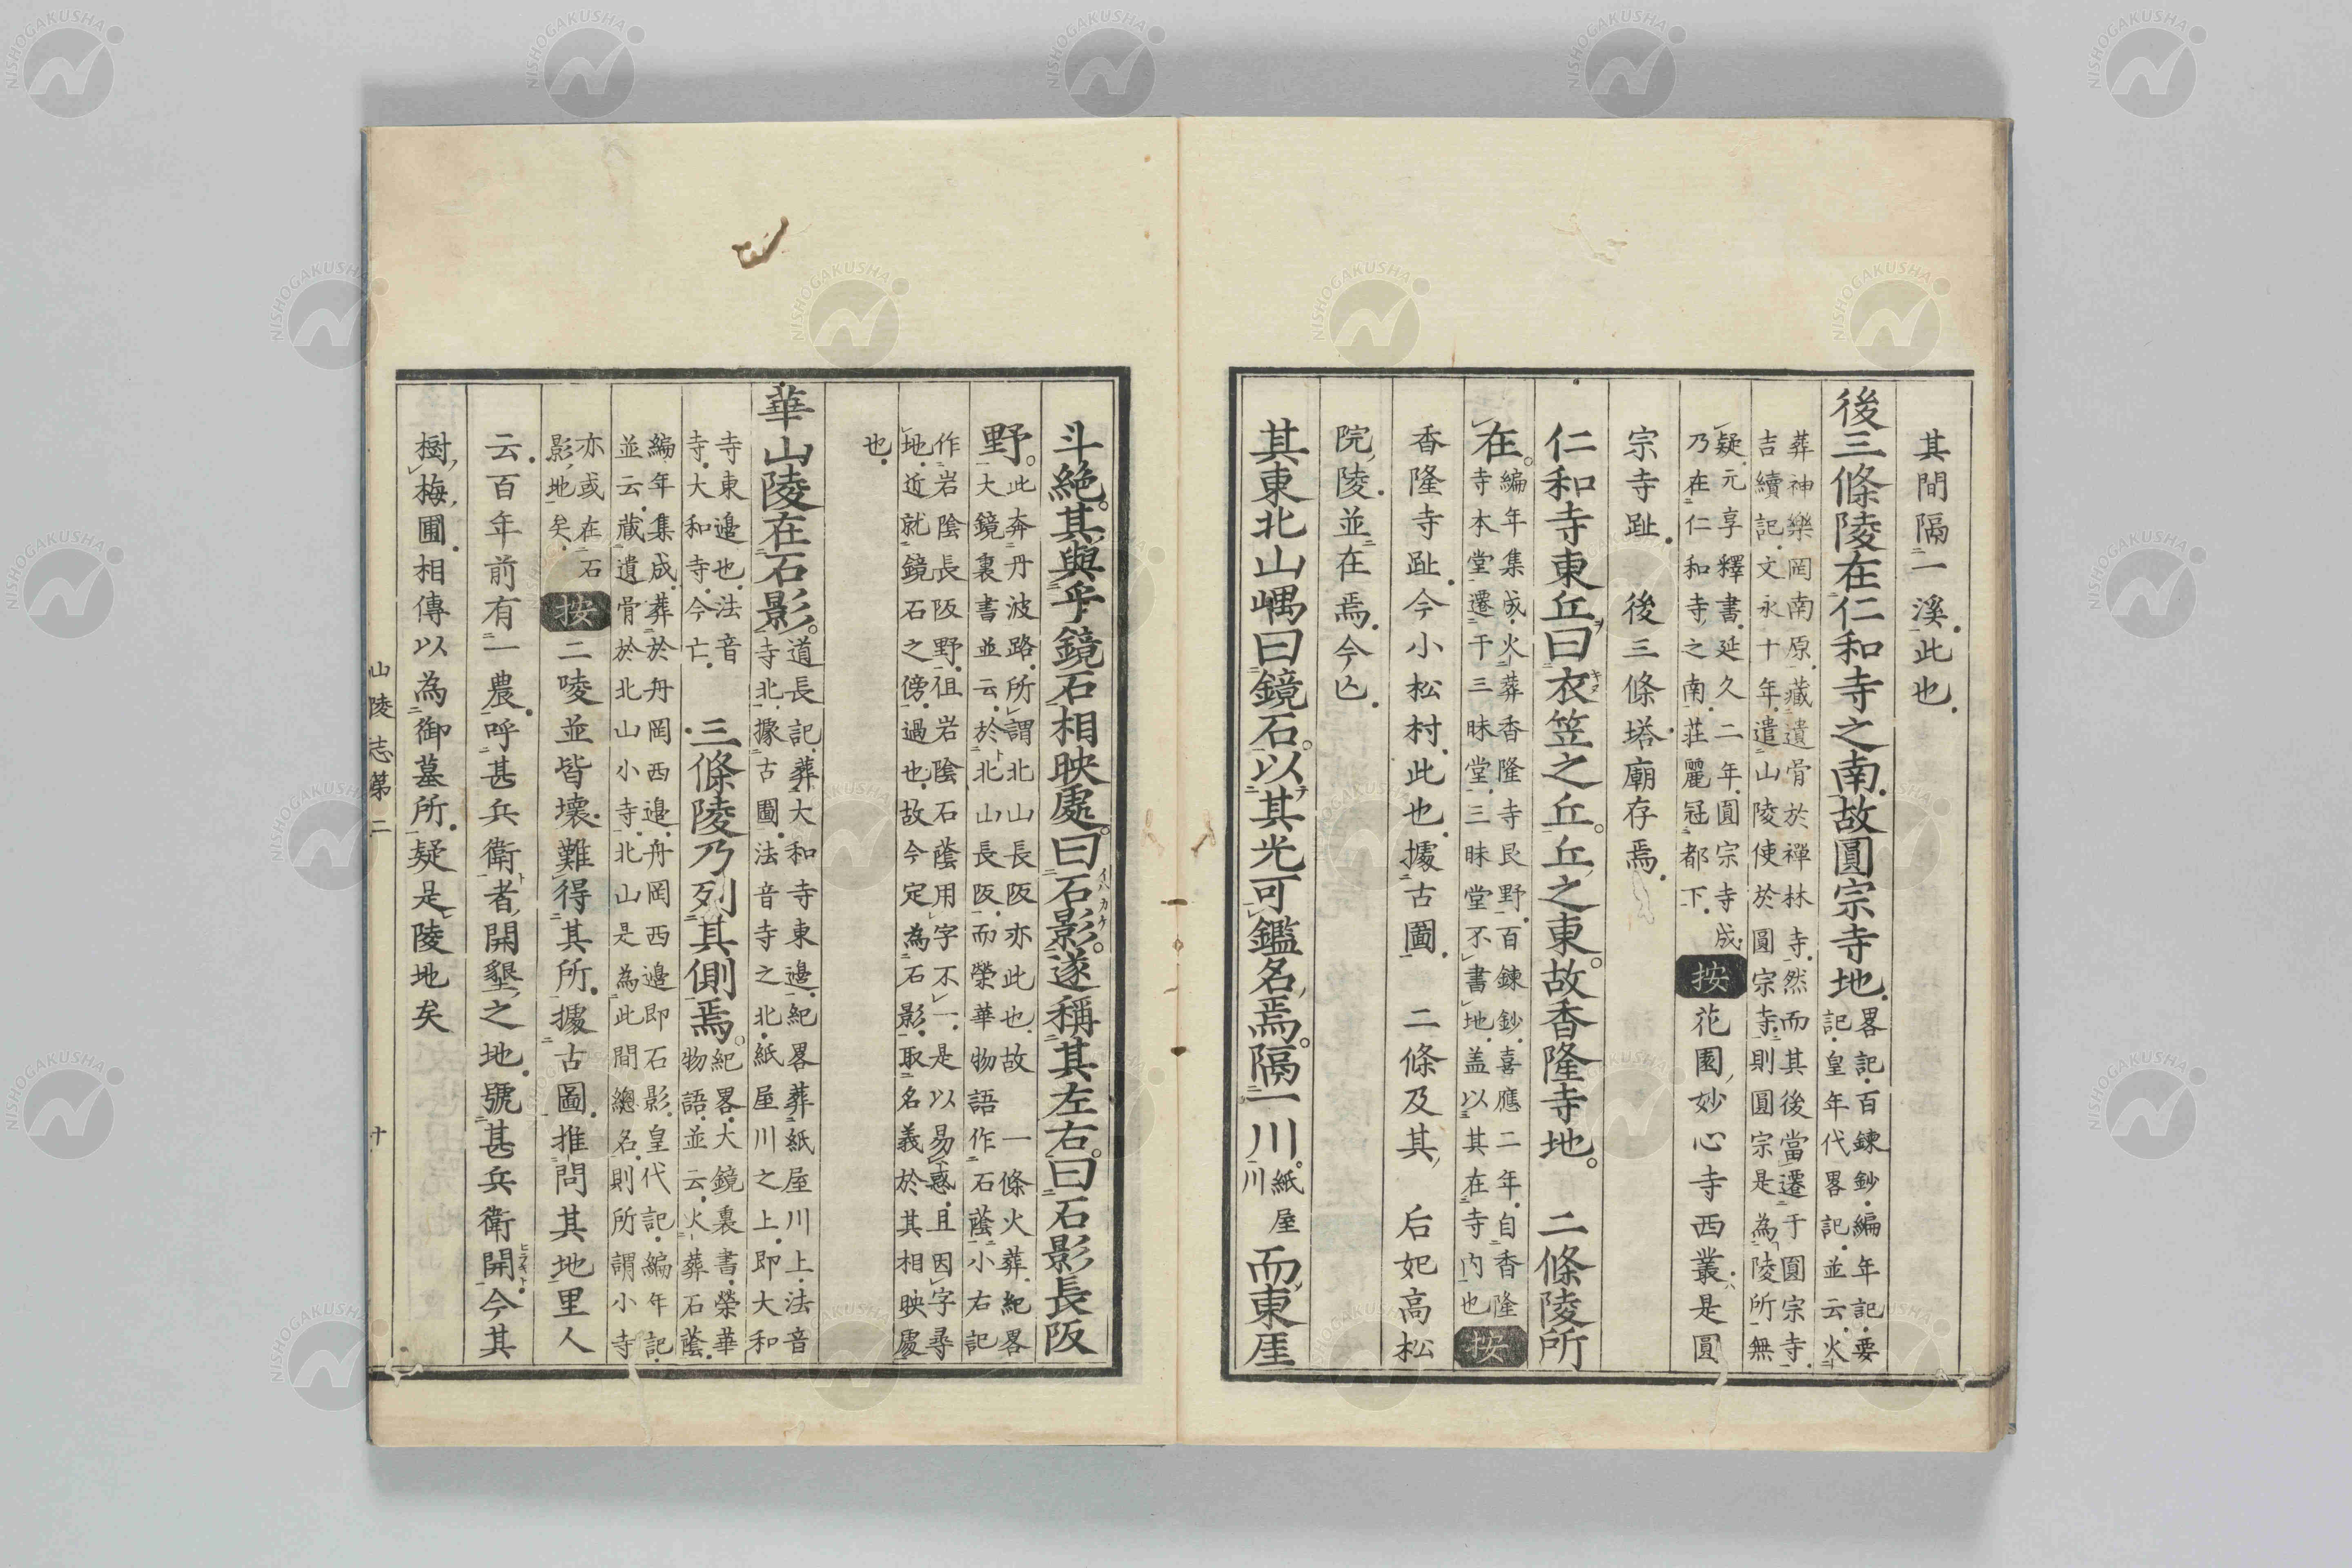 其間隔一溪此也
後三條陵在仁和寺之南故圓宗寺地畧記百鍊鈔編年記要記皇年代畧記並云火
葬神樂岡南原藏遺骨於禪林寺然而其後當遷于圓宗寺吉續記文永十年遣山陵使於圓宗寺則圓宗是為陵所無
疑元享釋書延久二年圓宗寺成乃在仁和寺之南莊麗冠都下按花園妙心寺西叢是圓
宗寺趾後三條塔廟存焉
仁和寺東丘曰衣笠之丘丘之東故香隆寺地二條陵所
在編年集成火葬香隆寺艮野百鍊鈔喜應二年自香隆寺本堂遷于三昧堂三昧堂不書地盖以其在寺內也按
香隆寺趾今小松村此也據古圖二條及其后妃高松
院陵並在焉今亡
其東北山嵎曰鏡石以其光可鑑名焉隔一川紙屋川而東厓
斗絕其與乎鏡石相映處曰石影遂稱其左右曰石影長阪
野此奔丹波路所謂北山長阪亦此也故一條火葬紀畧大鏡裏書並云於北山長阪而榮華物語作石蔭小右記
作岩陰長阪野徂岩陰石蔭用字不一是以易惑且因字尋地近就鏡石之傍過也故今定為石影取名義於其相映處
也
華山陵在石影道長記葬大和寺東邉紀畧葬紙屋川上法音寺北據古圖法音寺之北紙屋川之上即大和
寺東邉也法音寺大和寺今亡三條陵乃列其側焉紀畧大鏡裏書榮華物語並云火葬石蔭
編年集成葬於舟岡西邉舟岡西邉即石影皇代記編年記並云藏遺骨於北山小寺北山是為此間總名則所謂小寺
亦或在石影地矣按二陵並皆壞難得其所據古圖推問其地里人
云百年前有一農呼甚兵衛者開墾之地號甚兵衛開今其
樹梅圃相傳以為御墓所疑是陵地矣
山陵志第二
十
NISHOGAKUSHA